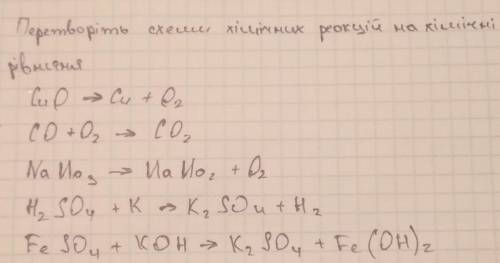 Перетворіть схеми хімічних реакцій на хімічні
рівняння
CuO → Cu + O₂
CO + O₂ → CO₂
NaNo₃ → NaNo₂ + O₂
H₂SO₄ + K → K₂SO₄ + H₂
FeSO₄ + KOH → K₂SO₄ + Fe(OH)₂